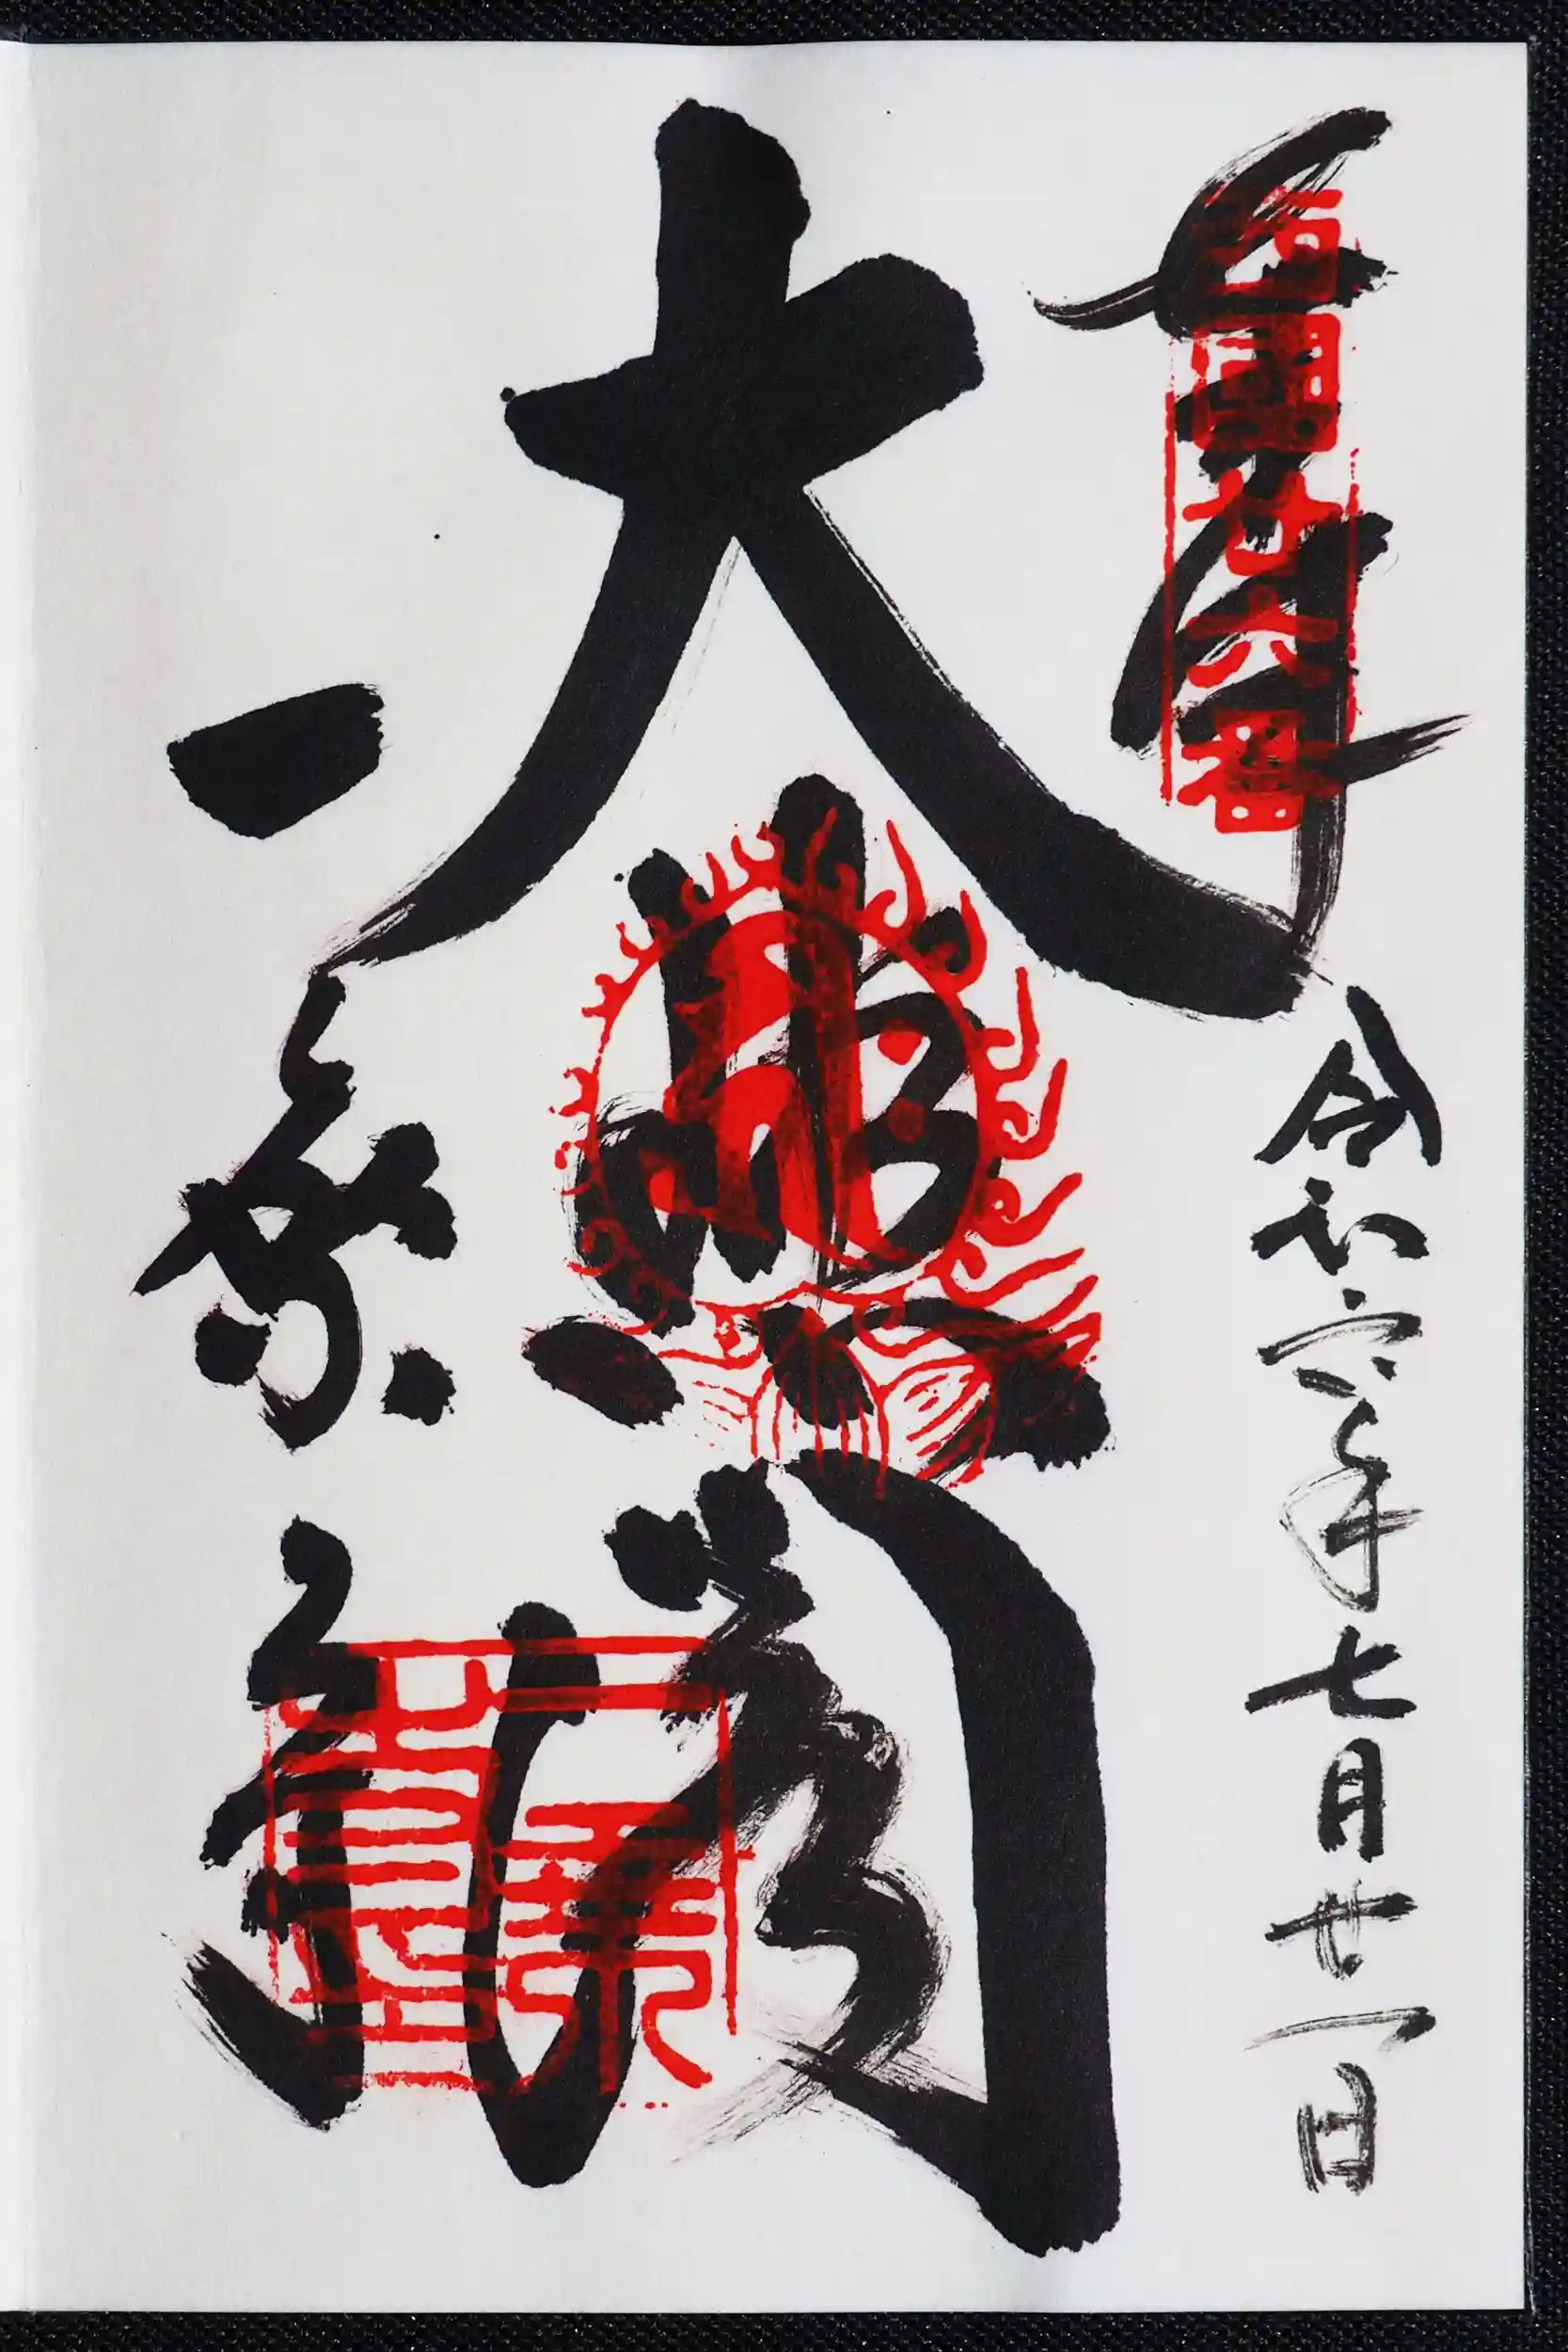 奉拝
西國廿六番
令和六年七月廿一日
大悲閣
一乗寺